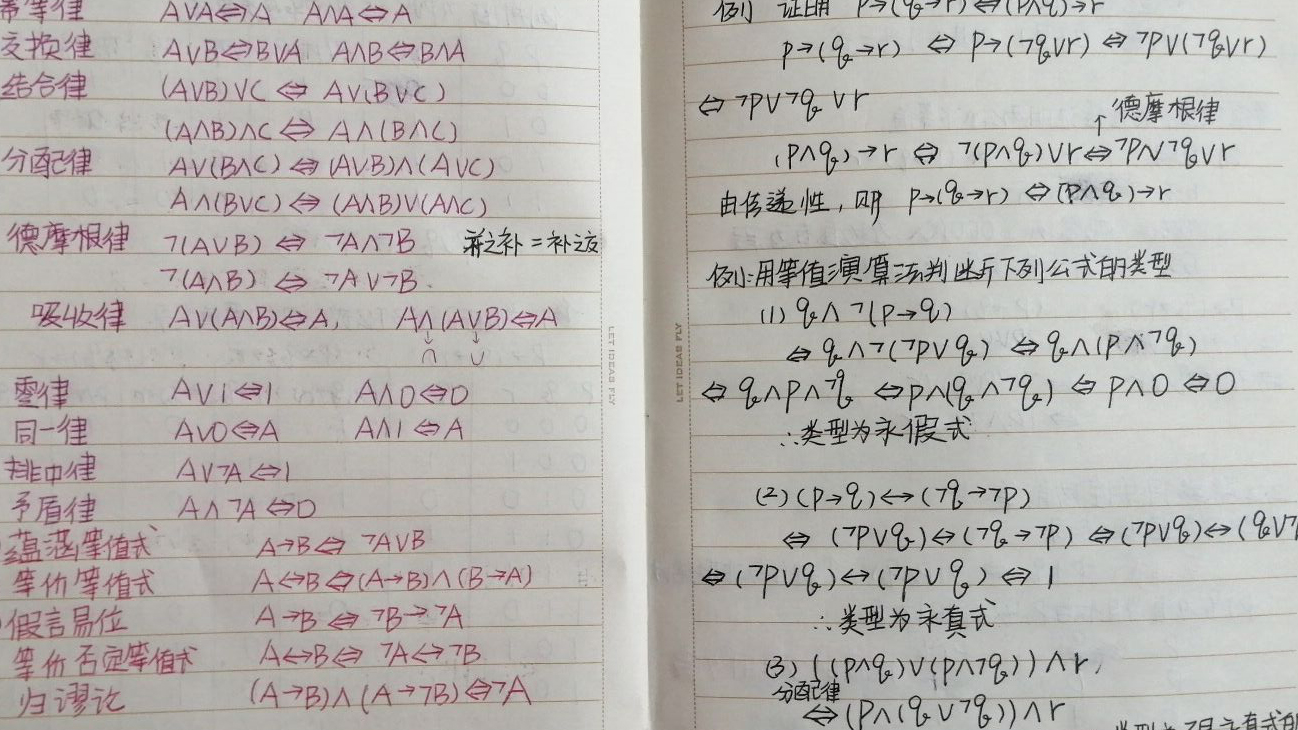 幂等律 A∨A⇔A A∧A⇔A
交换律 A∨B⇔B∨A A∧B⇔B∧A
结合律 (A∨B)∨C ⇔ A∨(B∨C)
(A∧B)∧C ⇔ A∧(B∧C)
分配律 A∨(B∧C) ⇔ (A∨B)∧(A∨C)
A∧(B∨C) ⇔ (A∧B)∨(A∧C)
德摩根律 ¬(A∨B) ⇔ ¬A∧¬B 并之补=补之交
¬(A∧B) ⇔ ¬A∨¬B.
吸收律 A∨(A∧B)⇔A, A∧(A∨B)⇔A
↓ ↓
∩ ∪
零律 A∨1⇔1 A∧0⇔0
同一律 A∨0⇔A A∧1⇔A
排中律 A∨¬A⇔1
矛盾律 A∧¬A⇔0
蕴涵等值式 A→B⇔ ¬A∨B
等价等值式 A↔B⇔(A→B)∧(B→A)
假言易位 A→B⇔ ¬B→¬A
等价否定等值式 A↔B⇔ ¬A↔¬B
归谬论 (A→B)∧(A→¬B)⇔¬A
LET IDEAS FLY
LET IDEAS FLY
例 证明 p→(q→r)⇔(p∧q)→r
p→(q→r) ⇔ p→(¬q∨r) ⇔ ¬p∨(¬q∨r)
⇔ ¬p∨¬q∨r
↑ 德摩根律
(p∧q)→r ⇔ ¬(p∧q)∨r⇔¬p∨¬q∨r
由传递性, 即 p→(q→r) ⇔(p∧q)→r
例:用等值演算法判断下列公式的类型
(1) q∧¬(p→q)
⇔ q∧¬(¬p∨q) ⇔q∧(p∧¬q)
⇔ q∧p∧¬q ⇔p∧(q∧¬q) ⇔ p∧0 ⇔0
∴类型为永假式
(2) (p→q)↔(¬q→¬p)
⇔ (¬p∨q)↔(¬q→¬p) ⇔(¬p∨q)↔(q∨¬
⇔(¬p∨q)↔(¬p∨q) ⇔ 1
∴类型为永真式
(3) ((p∧q)∨(p∧¬q))∧r,
分配律
⇔(p∧(q∨¬q))∧r